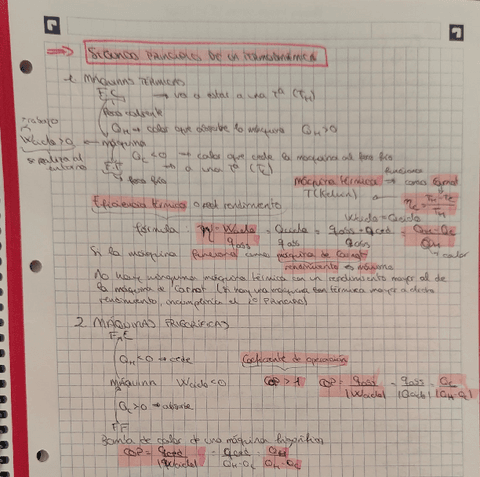 SEGUNDO PRINCIPIO DE LA TERMODINÁMICA
1. MÁQUINAS TÉRMICAS
F.C → va a estar a una Tª (T_H)
Foco caliente
Q_H → calor que absorbe la máquina Q_H>0
Trabajo
Wciclo>0 ← máquina
se realiza al entorno
Q_C<0 → calor que cede la máquina al foco frío
F.F → a una Tª (T_C)
↳ foco frío
máquina térmica → funciona como Carnot
T(Kelvin) η_c = T_H - T_C / T_H
Eficiencia térmica o real rendimiento
Wciclo = Qciclo
fórmula: η = Wciclo / q_abs = Qciclo / q_abs = q_abs - q_ced / q_abs = Q_H - Q_C / Q_H
calor
Si la máquina funciona como máquina de Carnot
rendimiento es máximo
No hay ninguna máquina térmica con un rendimiento mayor al de
la máquina de Carnot (Si hay una máquina térmica mayor a dicho
rendimiento, incumpliría el 2º Principio)
2. MÁQUINAS FRIGORÍFICAS
F.C
Q_H<0 → cede
Coeficiente de operación
máquina Wciclo<0
COP>1 COP = q_abs / |Wciclo| = q_abs / |Qciclo| = Q_C / |Q_H - Q_C|
Q_C>0 → absorbe
F.F
Bomba de calor de una máquina frigorífica
COP = q_ced / |Wciclo| = q_ced / Q_H - Q_C = Q_H / Q_H - Q_C